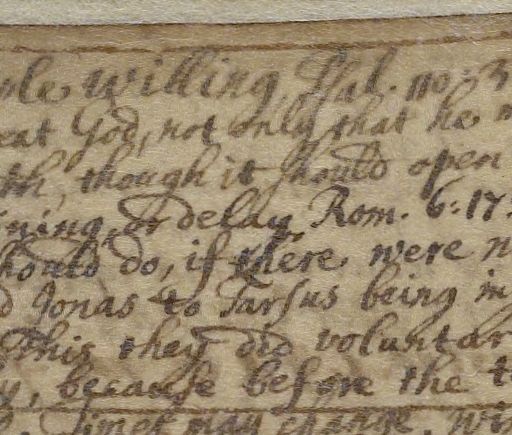 ple willing, Psal. 110: 3
eat God, not only that he m
th, though it should open
ining, or delay, Rom. 6: 17:
hould do, if there were n
d Jonas to Tarsus being in
This they did voluntar
y, because before the t
Times may change, wi